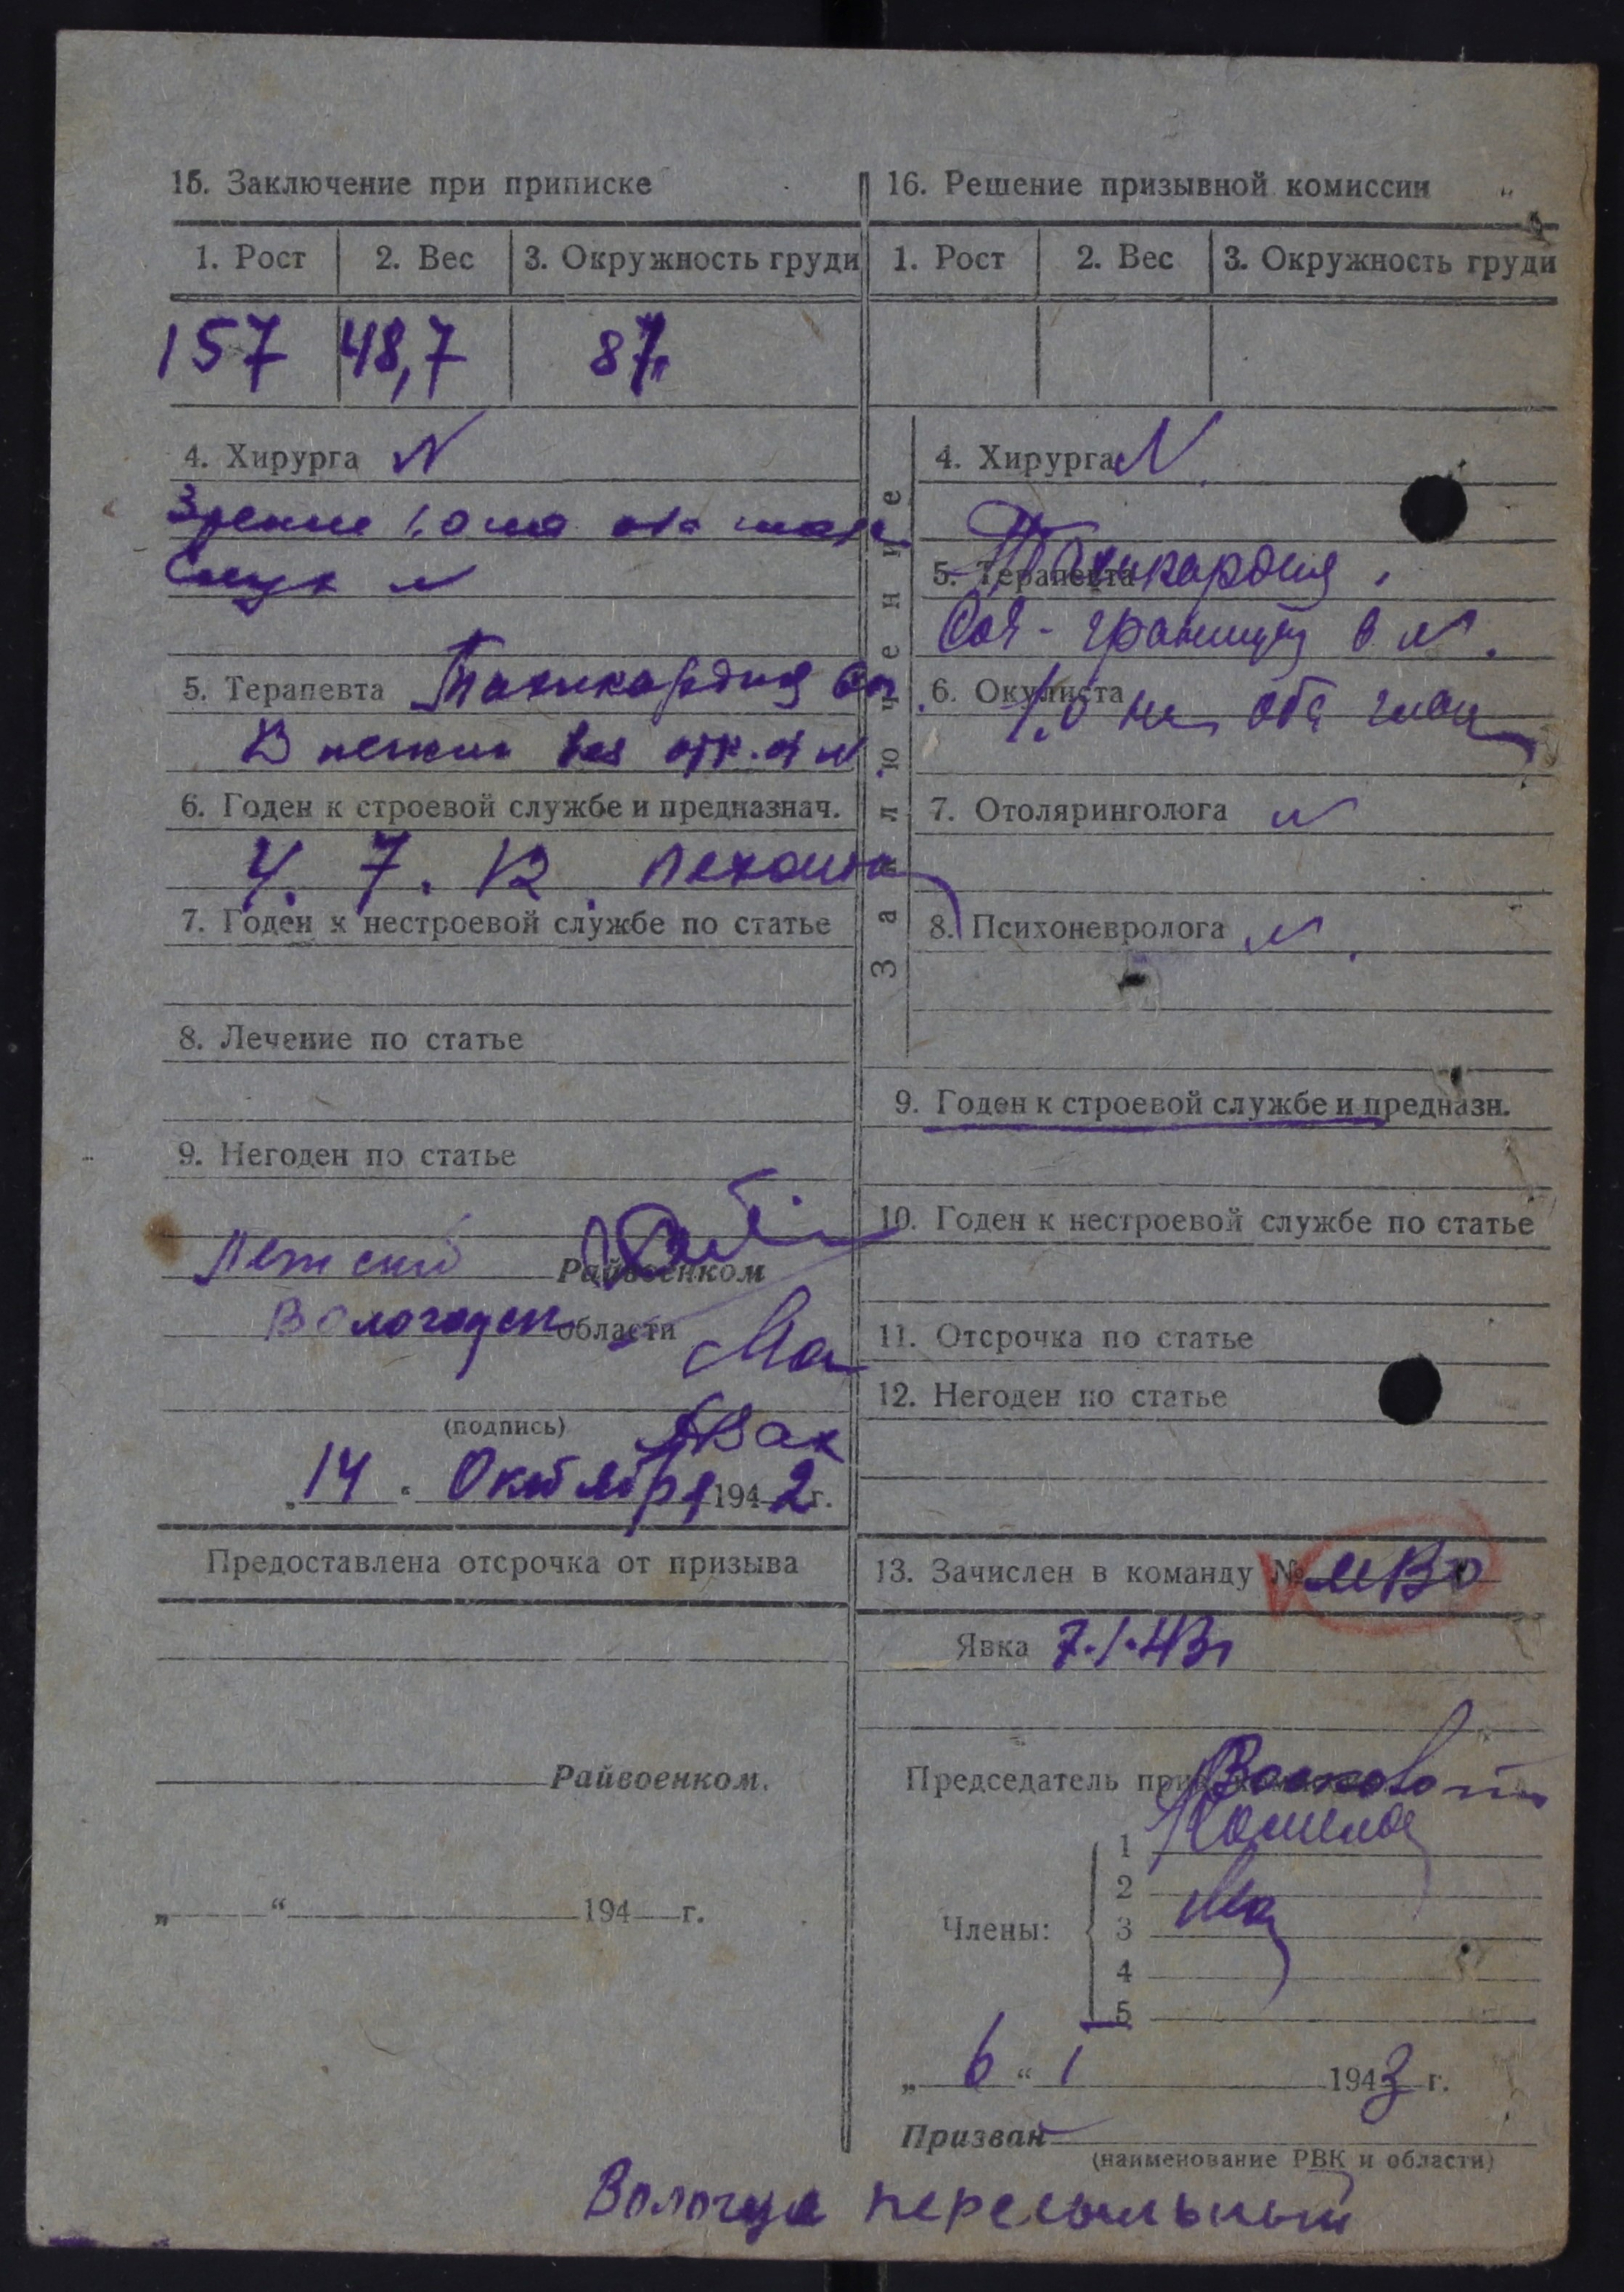 15. Заключение при приписке
1. Рост 2. Вес 3. Окружность груди
157 48,7 87
4. Хирурга N
Зрение 1,0 на оба глаза
Слух N
5. Терапевта Тахикардия
В легких без
6. Годен к строевой службе и предназнач.
Ч. 7. В пехота
7. Годен к нестроевой службе по статье
8. Лечение по статье
9. Негоден по статье
Райвоенком
Вологодск области
(подпись)
„14“ Октября 1942 г.
Предоставлена отсрочка от призыва
Райвоенком.
„ “ 194 г.
16. Решение призывной комиссии
1. Рост 2. Вес 3. Окружность груди
Заключение
4. Хирурга N
5. Терапевта Тахикардия,
границы в N.
6. Окулиста 1,0 на оба глаза
7. Отоляринголога N
8. Психоневролога N.
9. Годен к строевой службе и предназн.
10. Годен к нестроевой службе по статье
11. Отсрочка по статье
12. Негоден по статье
13. Зачислен в команду № МВО
Явка 7.1.43г
Председатель
Члены:
1
2
3
4
5
„6“ 1 1943 г.
Призван
(наименование РВК и области)
Вологда пересыльный